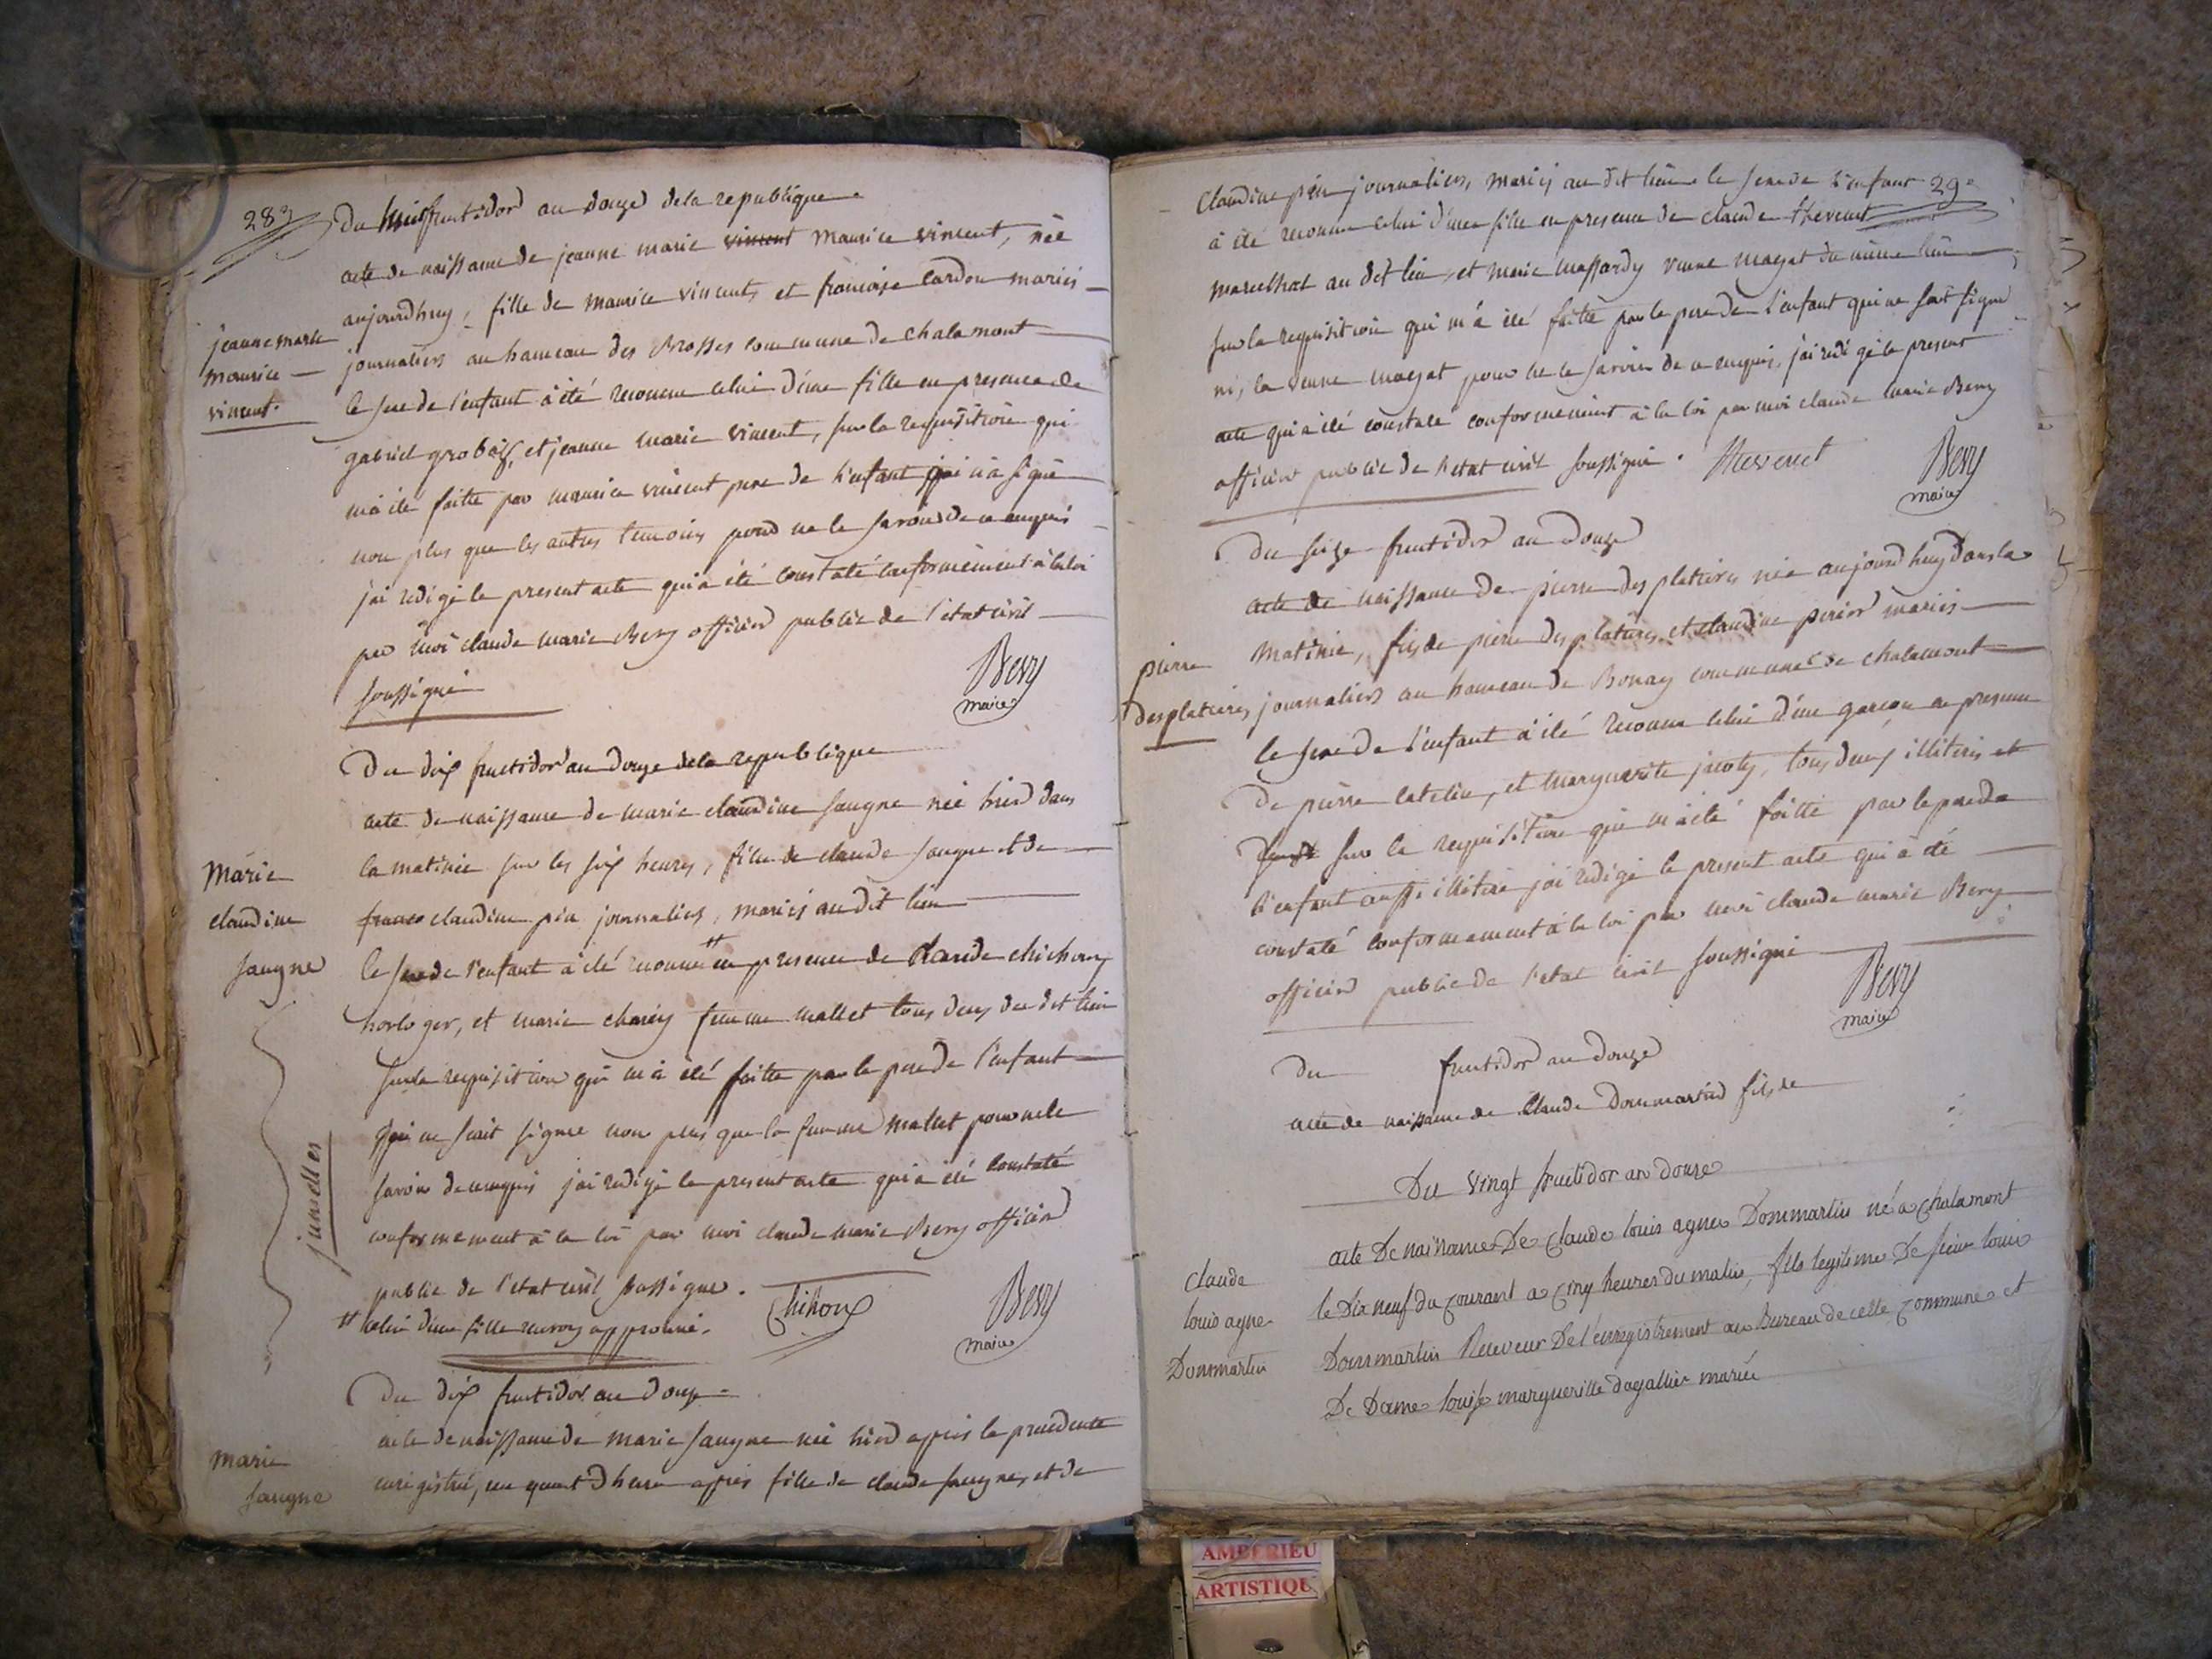 28e
Du huit fructidor an douze de la republique
acte de naissance de jeanne marie vincent maurice vincent, née
aujourd'huy, fille de maurice vincent, et francoise cardon mariés
jeanne marie
maurice
vincent.
journaliers au hameau des Brosses commune de chalamont
le sexe de l'enfant à été reconnu celui d'une fille en presence de
gabriel grobas, et jeanne marie vincent, sur la requisition qui
m'a été faitte par maurice vincent pere de l'enfant qui n'a signé
non plus que les autres temoins pour ne le savoir de ce enquis
j'ai redigé le present acte qui à été constaté conformement à la loi
par moi claude marie Bery officier public de l'etat civil
soussigné
Bery
maire
Du dix fructidor an douze de la republique
acte de naissance de marie claudine saugne née hier dans
la matinée sur les six heures, fille de claude saugne et de
Marie
claudine
saugne
claudine pin journaliers, mariés au dit lieu
le sexe de l'enfant à été reconnu # en presence de claude
horloger, et marie femme mallet tous deux du dit lieu
sur la requisition qui m'a été faitte par le pere de l'enfant
qui ne scait signer non plus que la femme mallet pour ne le
savoir de ce enquis j'ai redigé le present acte qui à été constaté
conformement à la loi par moi claude marie Bery officier
public de l'etat civil soussigné.
jumelles
# celui d'une fille renvoy approuvé.
Bery
maire
Du dix fructidor an douze
acte de naissance de marie saugne née hier après la precedente
enregistrée, un quart d'heure après fille de claude saugne, et de
marie
saugne
claudine pin journaliers, mariés au dit lieu le sexe de l'enfant 29e
à été reconnu celui d'une fille en presence de claude thevenet
marechal au dit lieu, et marie massardy veuve magat du même lieu
sur la requisition qui m'a été faitte par le pere de l'enfant qui ne scait signer
ni, la veuve magat pour ne le savoir de ce enquis, j'ai redigé le present
acte qui a été constaté conformement à la loi par moi claude marie Bery
officier public de l'etat civil soussigné. thevenet
Bery
maire
Du seize fructidor an douze
acte de naissance de pierre desplatures née aujourd'huy dans la
matinée, fils de pierre desplatures et claudine perier mariés
pierre
desplatures
journaliers au hameau de Bonay commune de chalamont
le sexe de l'enfant à été reconnu celui d'un garcon en presence
de pierre catelin, et marguerite jacoty, tous deux illiterés et
sur la requisition qui m'a été faitte par le pere de
l'enfant aussi illiteré j'ai redigé le present acte qui à été
constaté conformement à la loi par moi claude marie Bery
officier public de l'etat civil soussigné
Bery
maire
Du fructidor an douze
acte de naissance de claude Dommartin fils de
Du vingt fructidor an douze
acte De naissance De Claude louis agnes Dommartin né a chalamont
le Dix neuf du courant a cinq heures du matin, fils legitime De sieur louis
Dommartin Receveur De l'enregistrement au Bureau de cette commune et
De Dame louise margueritte dagallier mariés
claude
louis agne
Dommartin
AMBERIEU
ARTISTIQUE